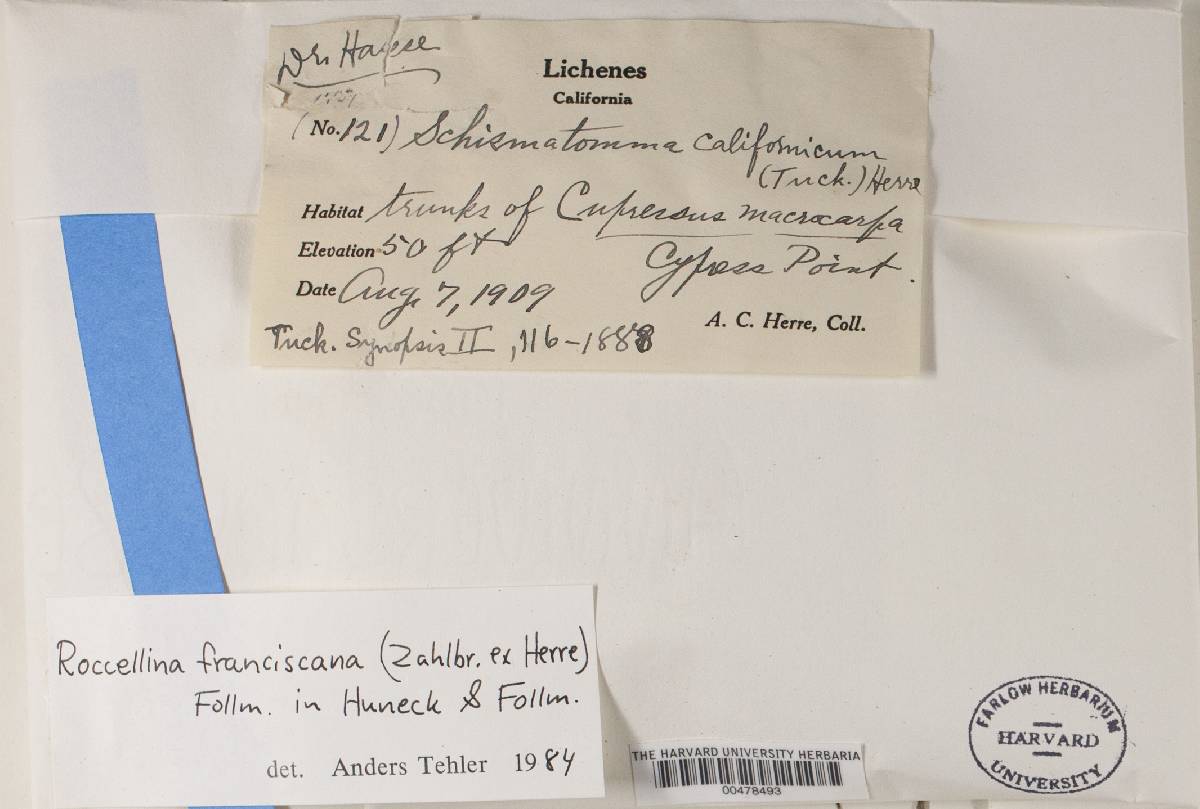 Dr. Hasse
1909
Lichenes
California
(No. 121) Schismatomma californicum
(Tuck.) Herre
Habitat trunks of Cupressus macrocarpa
Elevation 50 ft
Cypess Point.
Date Aug 7, 1909
A. C. Herre, Coll.
Tuck. Synopsis II, 116-1888
Roccellina franciscana (Zahlbr. ex Herre)
Follm. in Huneck & Follm.
det. Anders Tehler 1984
THE HARVARD UNIVERSITY HERBARIA
00478493
FARLOW HERBARIUM
HARVARD
UNIVERSITY